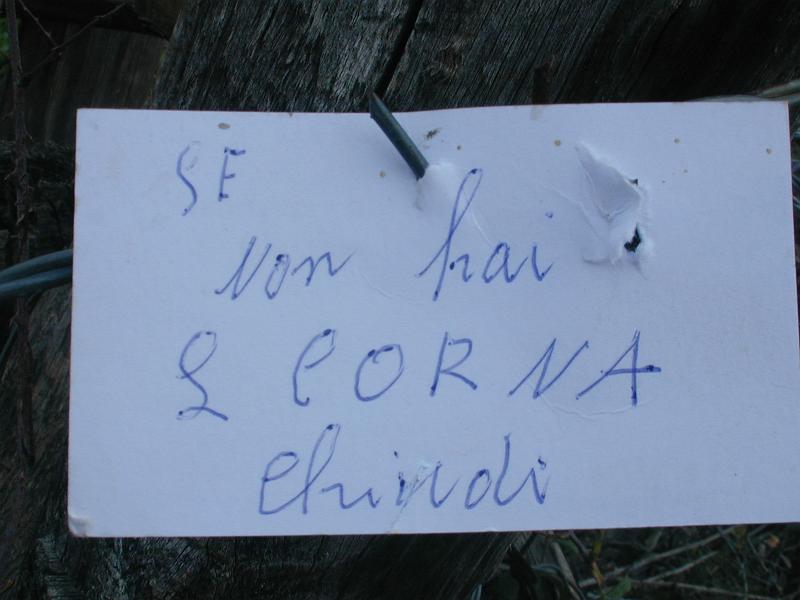 SE
Non hai
L CORNA
Chiudi